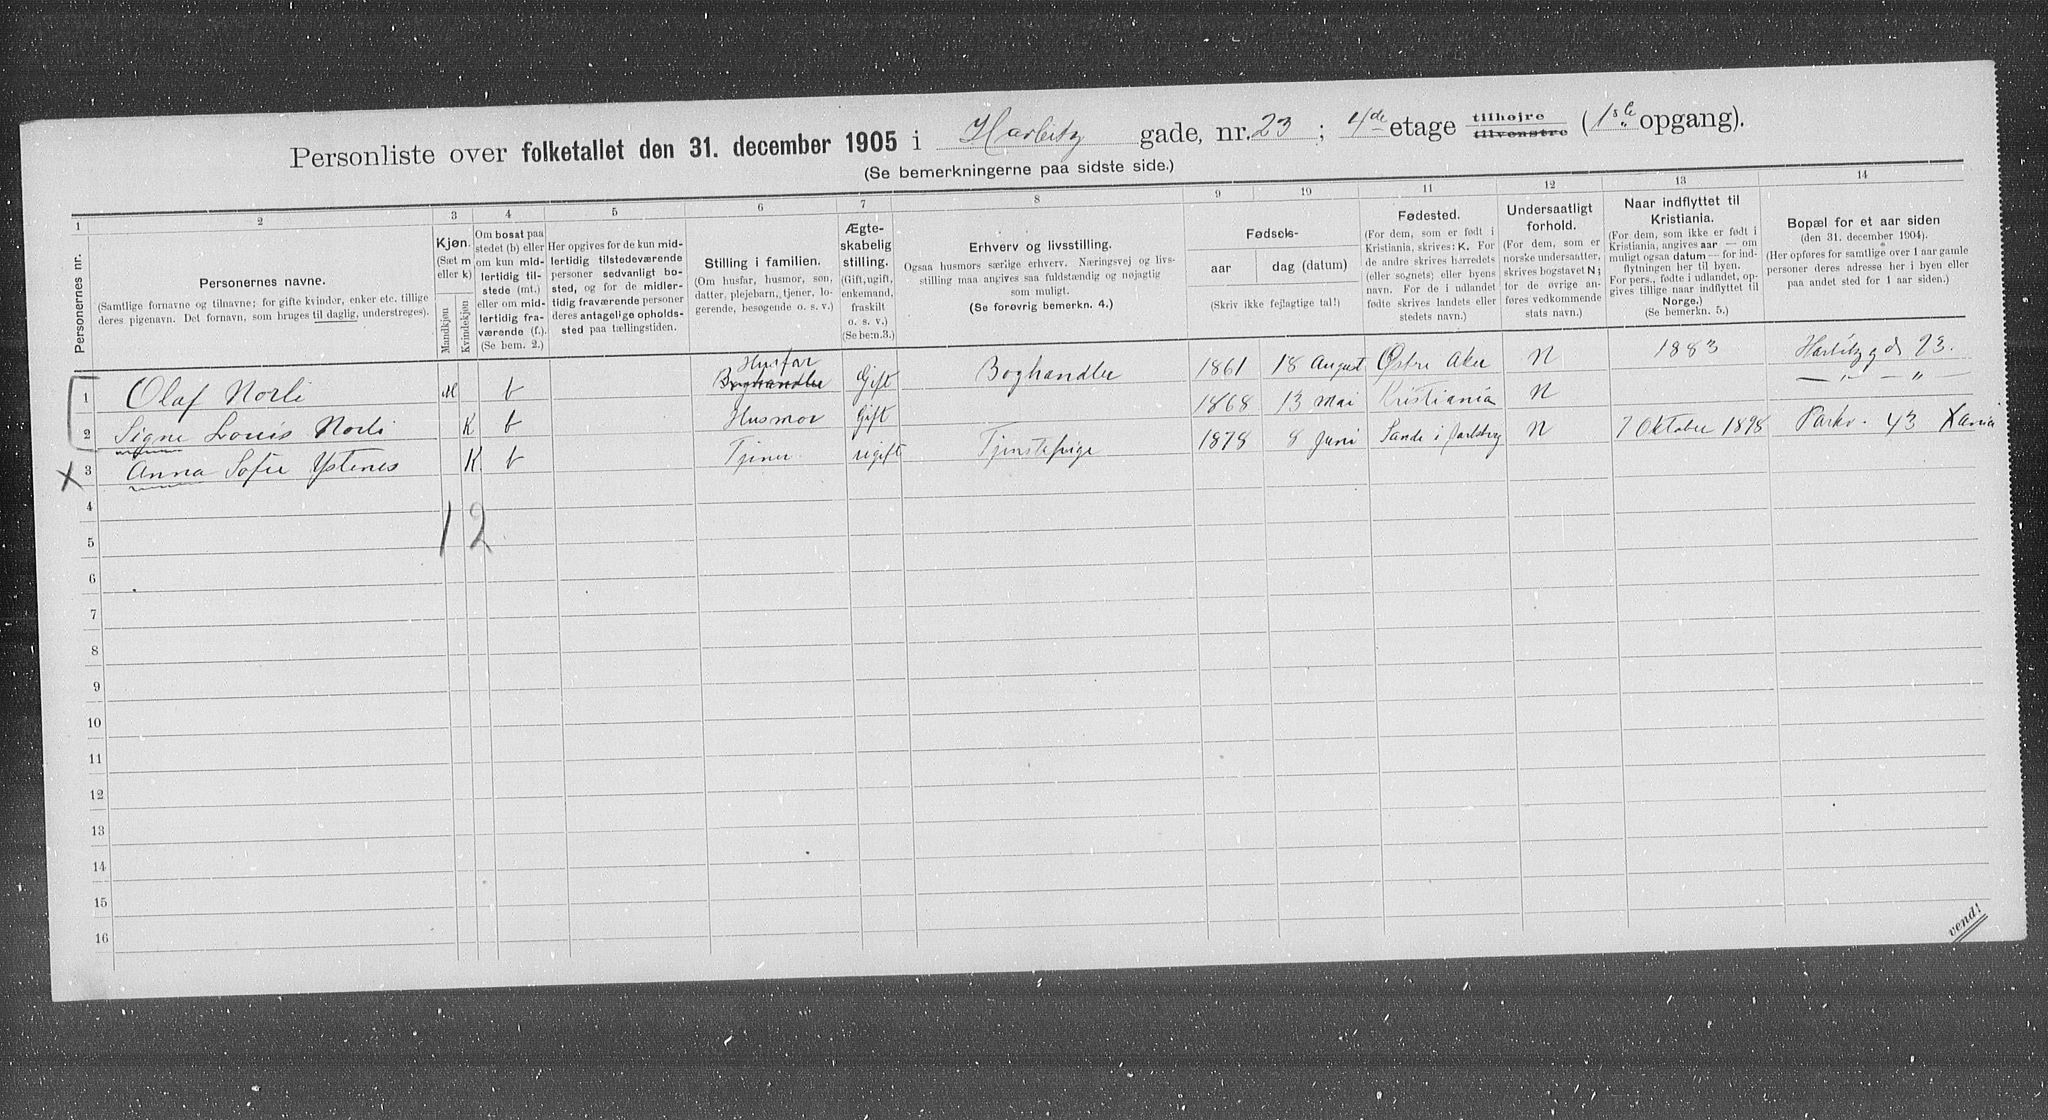 Personliste over folketallet den 31. december 1905 i Harbitz gade, nr. 23 ; 4de etage tilhøjre tilvenstre (1ste opgang).
(Se bemerkningerne paa sidste side.)
1 2 3 4 5 6 7 8 9 10 11 12 13 14
Personernes nr.
Personernes navne.
(Samtlige fornavne og tilnavne; for gifte kvinder, enker etc. tillige
deres pigenavn. Det fornavn, som bruges til daglig, understreges).
Kjøn.
(Sæt m
eller k)
Mandkjøn
Kvindekjøn
Om bosat paa
stedet (b) eller
om kun mid-
lertidig til-
stede (mt.)
eller om mid-
lertidig fra-
værende (f.).
(Se bem. 2.)
Her opgives for de kun mid-
lertidig tilstedeværende
personer sedvanligt bo-
sted, og for de midler-
tidig fraværende personer
deres antagelige opholds-
sted paa tællingstiden.
Stilling i familien.
(Om husfar, husmor, søn,
datter, plejebarn, tjener, lo-
gerende, besøgende o. s. v.)
Ægte-
skabelig
stilling.
(Gift, ugift,
enkemand,
fraskilt
o. s. v.)
(Se bem. 3.)
Erhverv og livsstilling.
Ogsaa husmors særlige erhverv. Næringsvej og livs-
stilling maa angives saa fuldstændig og nøjagtig
som muligt.
(Se forøvrig bemerkn. 4.)
Fødsels-
aar
dag (datum)
(Skriv ikke fejlagtige tal!)
Fødested.
(For dem, som er født i
Kristiania, skrives: K. For
de andre skrives herredets
(eller sognets) eller byens
navn. For de i udlandet
fødte skrives landets eller
stedets navn.)
Undersaatligt
forhold.
(For dem, som er
norske undersaatter,
skrives bogstavet N;
for de øvrige an-
føres vedkommende
stats navn.)
Naar indflyttet til
Kristiania.
(For dem, som ikke er født i
Kristiania, angives aar — om
muligt ogsaa datum — for ind-
flytningen her til byen.
For pers., fødte i udlandet, op-
gives tillige naar indflyttet til
Norge.)
(Se bemerkn. 5.)
Bopæl for et aar siden
(den 31. december 1904).
(Her opføres for samtlige over 1 aar gamle
personer deres adresse her i byen eller
paa andet sted for 1 aar siden.)
1 Olaf Norli M b Husfar Boghandler Gift Boghandler 1861 18 August Østre Aker N 1883 Harbitzgd 23.
2 Signe Louis Norli K b Husmor Gift 1868 13 Mai Kristiania N — „ — „ —
X 3 Anna Sofie Ystenes K b Tjener ugift Tjenstepige 1878 8 Juni Sande i Jarlsberg N 7 Oktober 1898 Parkv. 43 Xania
4
1 2
5
6
7
8
9
10
11
12
13
14
15
16
vend!